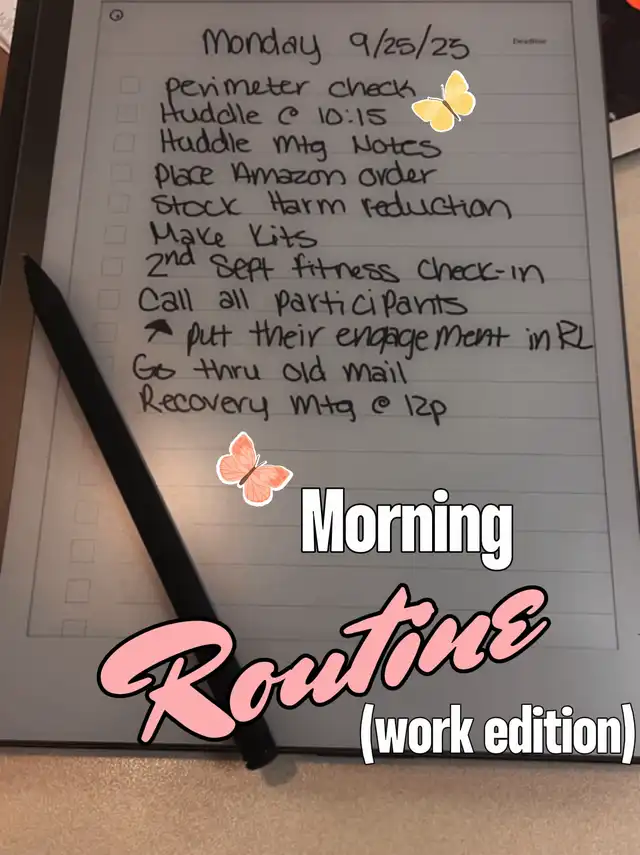 Monday 9/25/25
Deadline
Perimeter check
Huddle @ 10:15
Huddle Mtg Notes
Place Amazon order
Stock Harm reduction
Make Kits
2nd Sept fitness check-in
Call all participants
↗ put their engagement in RL
Go thru old mail
Recovery Mtg @ 12p
Morning
Routine
(work edition)